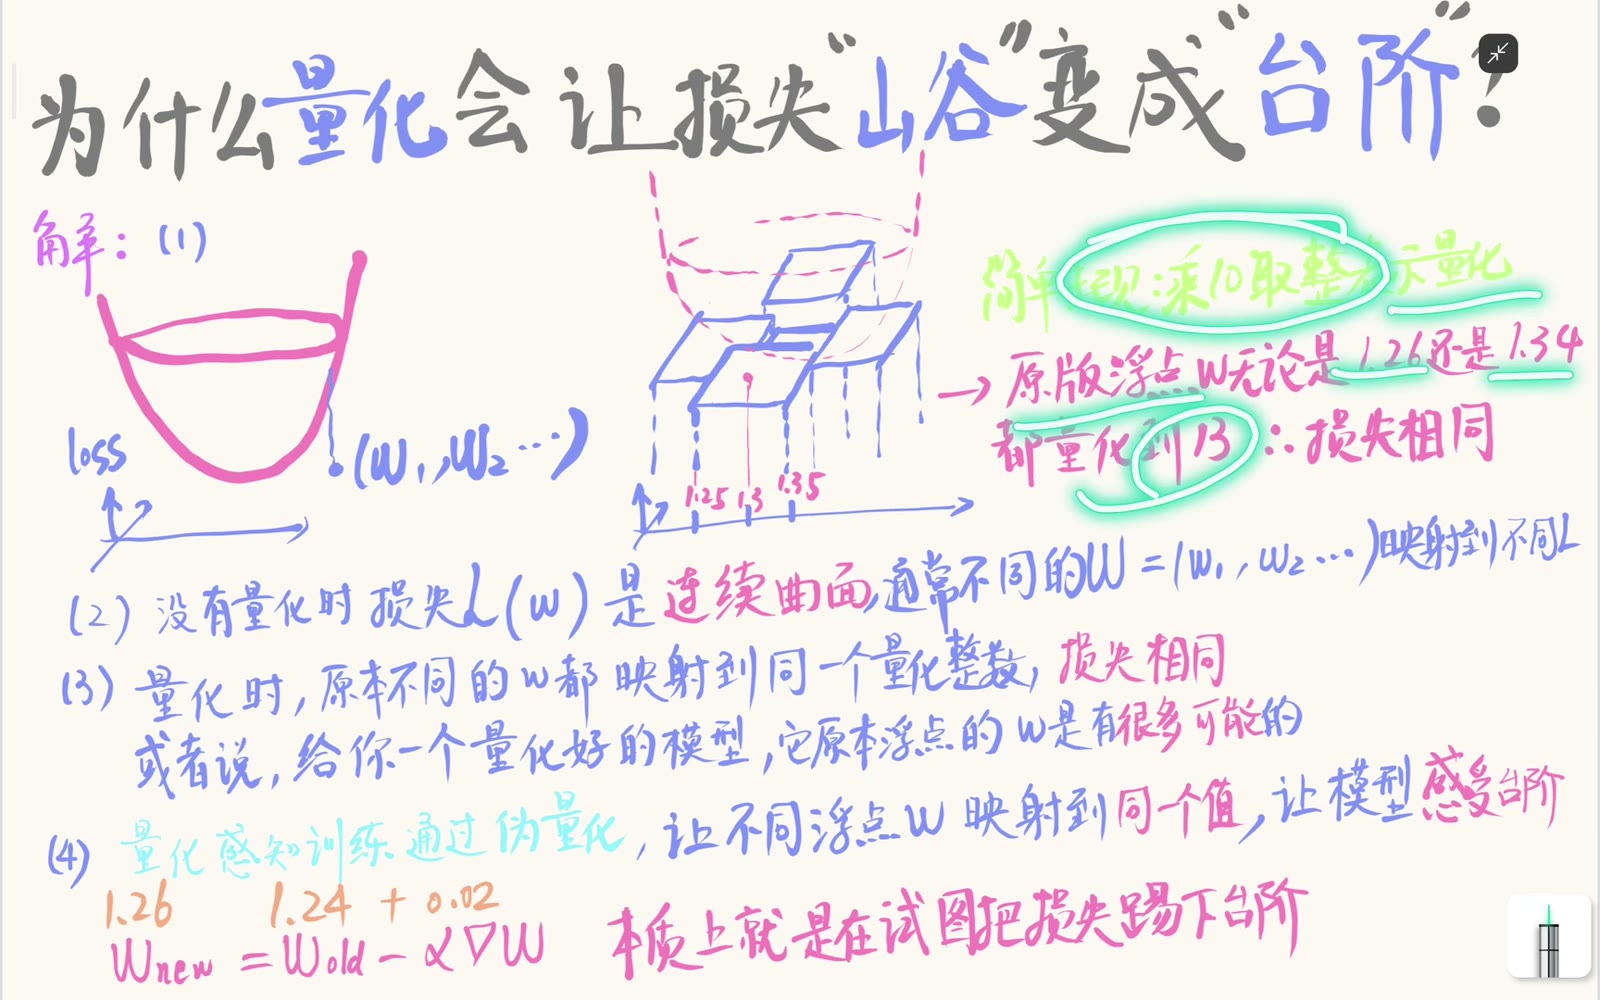 为什么量化会让损失“山谷”变成“台阶”?
解: (1)
loss
(W1, W2 ...)
1.25 1.3 1.35
简单 : 乘10取整表示量化
→ 原版浮点W无论是1.26还是1.34
都量化到13 ∴损失相同
(2) 没有量化时 损失L(w) 是连续曲面, 通常不同的W = (w1, w2 ...)映射到不同L
(3) 量化时, 原本不同的w都映射到同一个量化整数, 损失相同
或者说, 给你一个量化好的模型, 它原本浮点的w是有很多可能的
(4) 量化感知训练通过伪量化, 让不同浮点W映射到同一个值, 让模型感受台阶
1.26 1.24 + 0.02
Wnew = Wold - α∇W 本质上就是在试图把损失踢下台阶